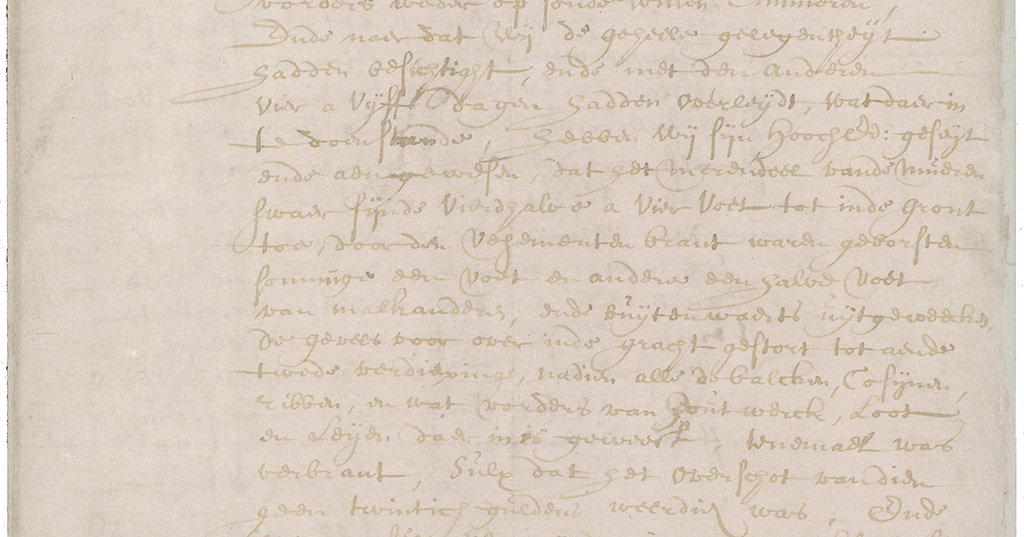 vorders weder op
Ende naer dat wij de geheele gelegentheijt
hadden besichtight, ende met den anderen
vier a vijff dagen hadden overleijdt, wat daer in
te doen stonde, hebben wij sijn Hoochh:d: geseijt
ende aengewesen, dat het merendeel vande mueren
swaer sijnde vierdhalve a vier voet tot inde gront
toe, door den vehementen brant waren geborsten
sommige een voet en andere een halve voet
van malkanderen, ende buijtenwaerts uijtgeweecken,
De gevels voor over inde gracht gestort tot aende
twede verdiepinge, nadien alle de balcken, Cosijnen,
ribben, en wat vorders van hout werck, Loot
en Leijen daer in is geweest, tenemael was
verbrant, Sulx dat het overschot van dien
geen twintich guldens weerdich was, Ende